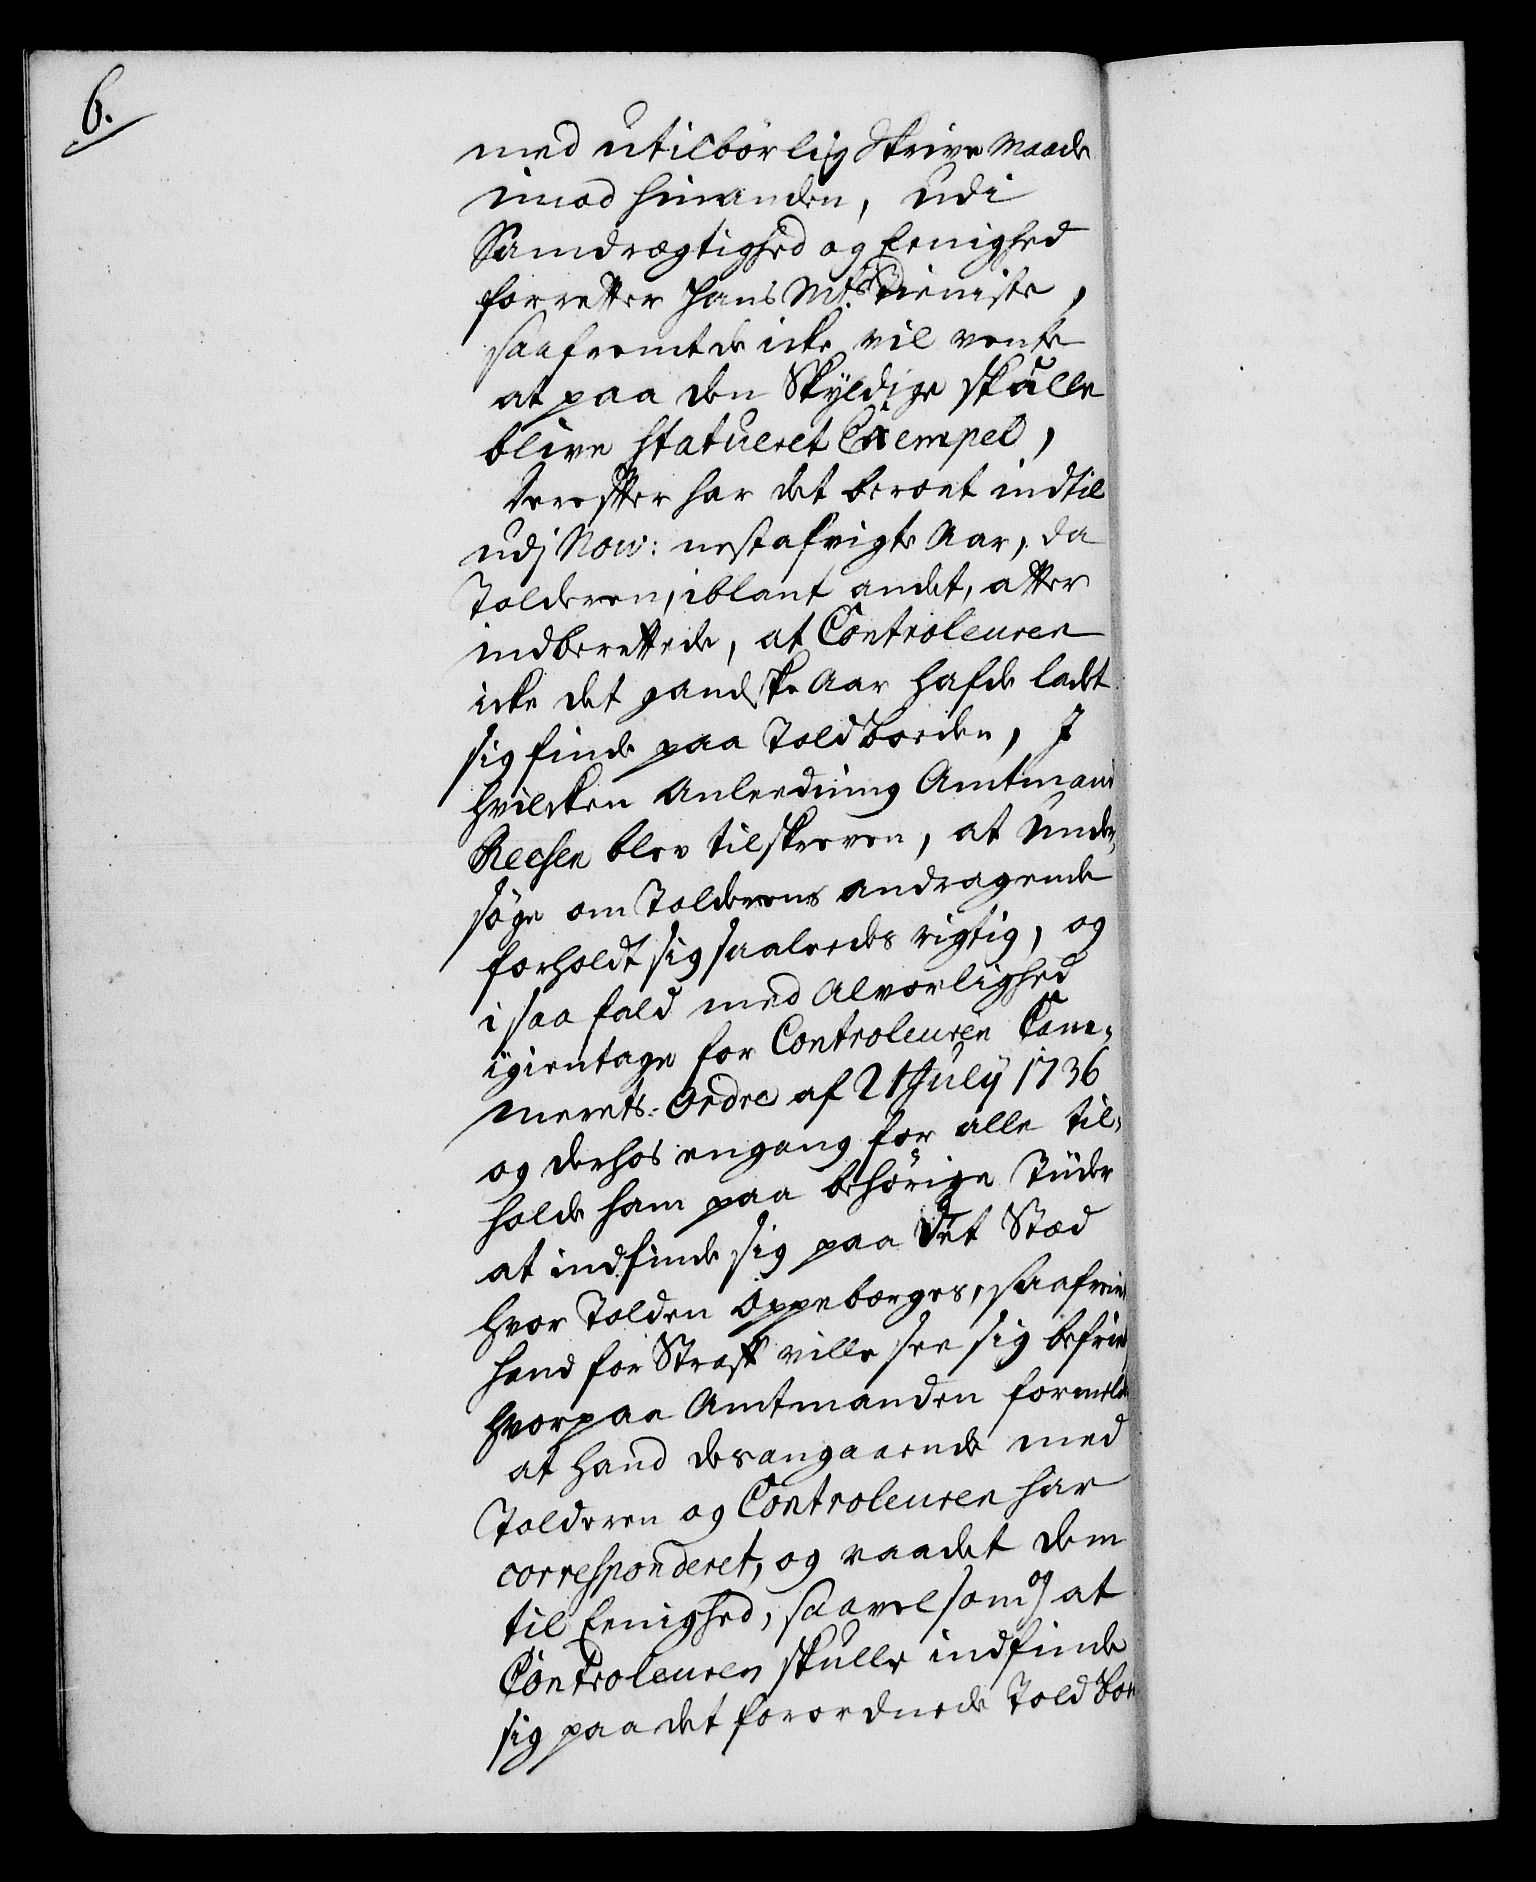 6.
med utilbörlig Skrive Maade
imod hinanden, udi
Samdrægtighed og Eenighed
forretter Hans Mts. Tieniste,
saafremt de icke vil vente
at paa den Skyldige skulle
blive statueret Exempel,
derefter har det beroet indtil
udj Nov: nestafvigte Aar, da
Tolderen, iblant andet, atter
indberettede, at Controleuren
icke det gandske Aar hafde ladt
sig finde paa Toldboeden, J
hvilcken Anleedning Amtmand
Reesen blev tilskreven, at under,
söge om Tolderens andragende
forholdt sig saaleedes rigtig, og
i saa fald med Alvorlighed
igientage for Controleuren Cam,
merets-Ordre af 21 July 1736
og derhos engang for alle til,
holde ham paa behörige Tiider
at indfinde sig paa det Stæd
hvor Tolden oppebærges, saafremt
hand for Straff ville see sig befriet
hvorpaa Amtmanden formelder
at hand desangaaende med
Tolderen og Controleuren har
corresponderet, og raadet dem
til Eenighed, saavelsom og at
Controleuren skulle indfinde
sig paa det forordnede Toldboe